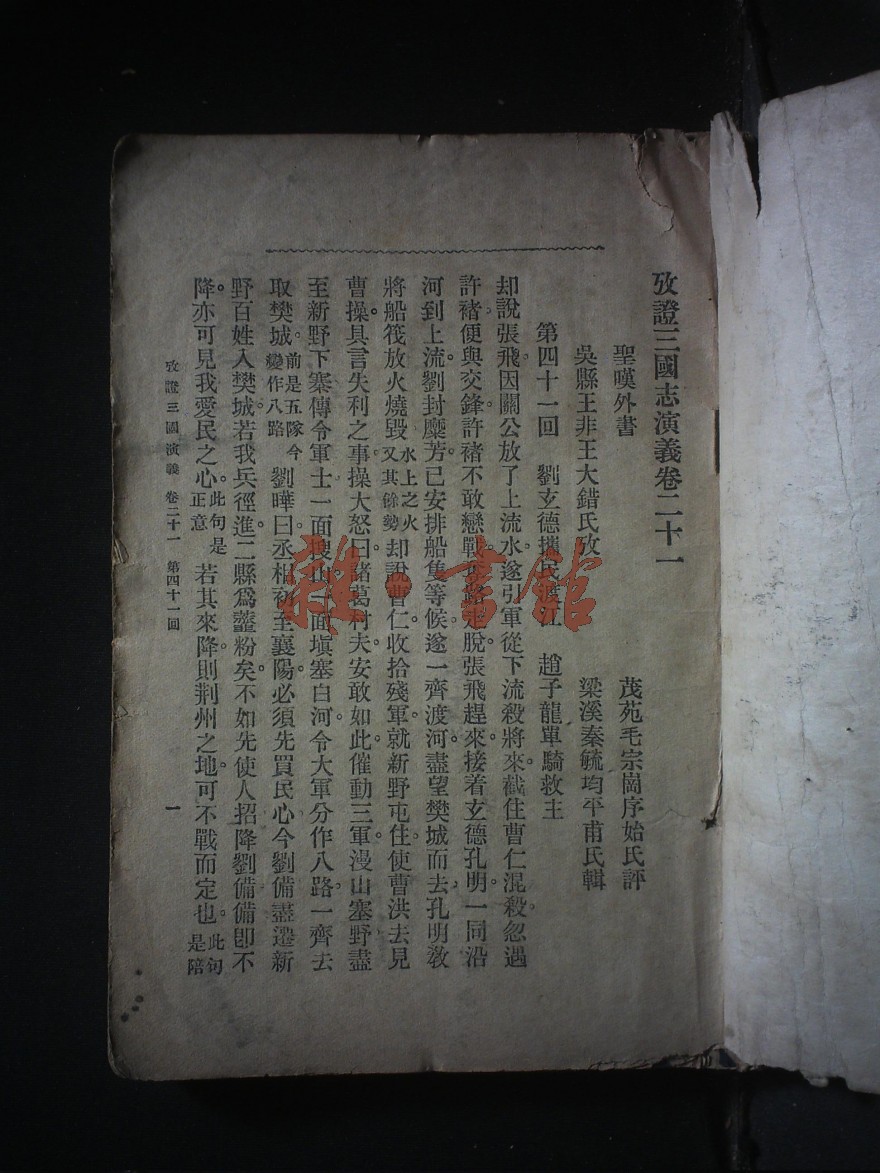 攷證三國志演義卷二十一
聖嘆外書　茂苑毛宗崗序始氏評
吳縣王非王大錯氏攷　梁溪秦毓均平甫氏輯
第四十一回　劉玄德攜民渡江　趙子龍單騎救主
却說張飛因關公放了上流水。遂引軍從下流殺將來。截住曹仁混殺。忽遇
許褚。便與交鋒。許褚不敢戀戰。奪路走脫。張飛趕來。接着玄德孔明。一同沿
河到上流。劉封糜芳已安排船隻等候。遂一齊渡河。盡望樊城而去。孔明敎
將船筏放火燒毀。水上之火又其餘勢却說曹仁收拾殘軍。就新野屯住。使曹洪去見
曹操。具言失利之事。操大怒曰。諸葛村夫。安敢如此。催動三軍。漫山塞野。盡
至新野下寨。傳令軍士一面搜山。一面塡塞白河。令大軍分作八路。一齊去
取樊城。前是五隊今變作八路劉曄曰。丞相初至襄陽。必須先買民心。今劉備盡遷新
野百姓入樊城。若我兵徑進。二縣爲虀粉矣。不如先使人招降劉備。備卽不
降。亦可見我愛民之心。此句是正意若其來降。則荆州之地。可不戰而定也。此句是陪
攷證三國演義　卷二十一　第四十一回　一
雜·書館